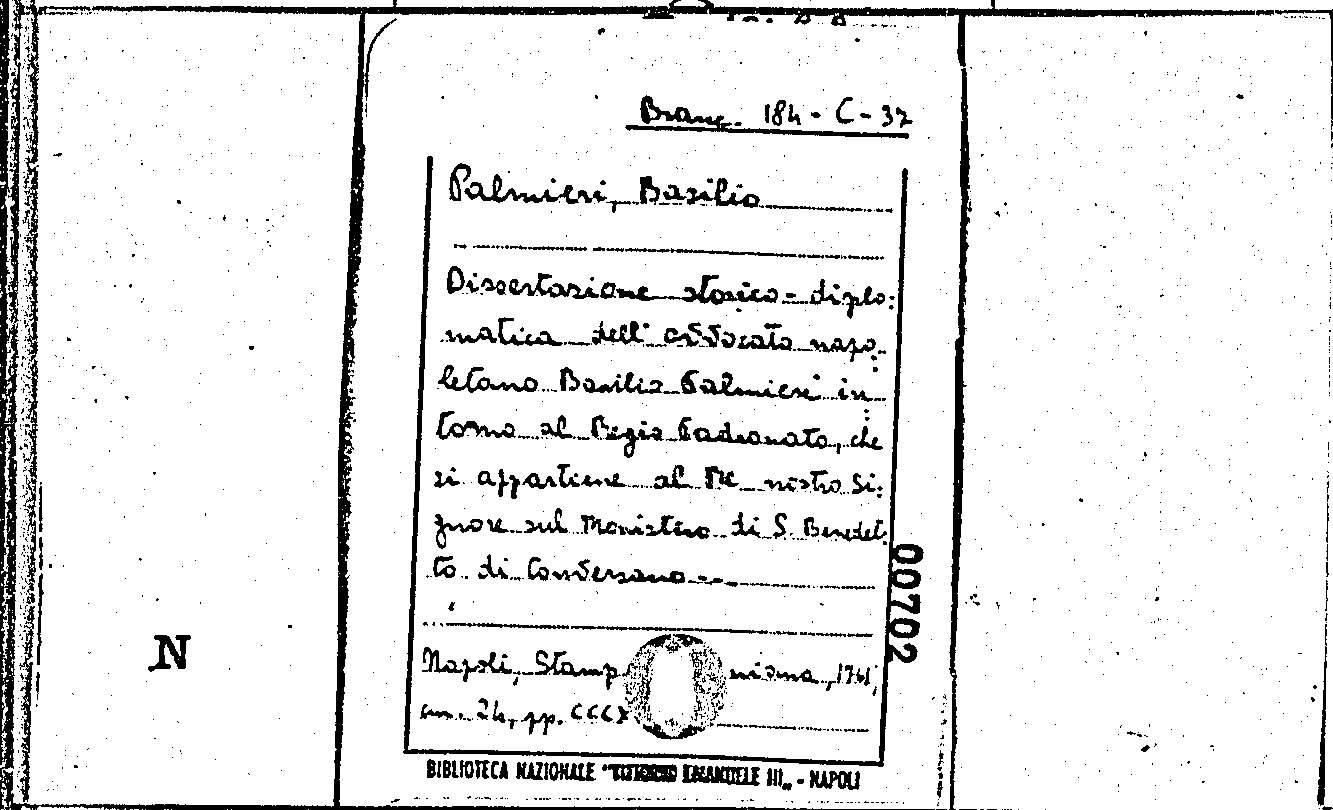 Branc. 184 - C - 37
Palmieri, Basilio
Dissertazione storico-diplo:
matica dell' avvocato napo:
letano Basilio Palmieri in:
torno al Regio Padronato, che
si appartiene al Re nostro Si:
gnore sul Monistero di S. Benedet:
to di Conversano ---
Napoli, Stamp niana, 1761,
cm. 24, pp. CCCX
BIBLIOTECA NAZIONALE "VITTORIO EMANUELE III„ - NAPOLI
00702
N